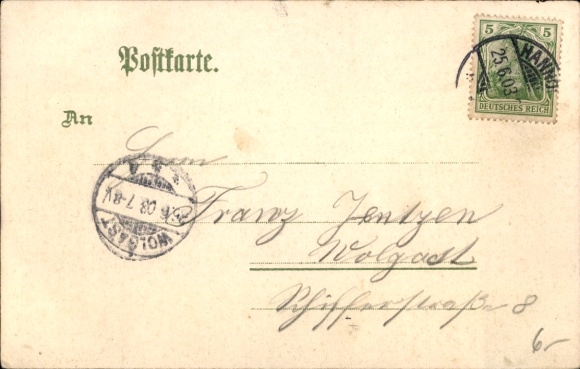 Postkarte.
5 5
DEUTSCHES REICH
HANNO
25.6.03
An
Herrn
Franz Jentzen
Wolgast
Schifferstraße 8
WOLGAST
6.03 7-8V
6-